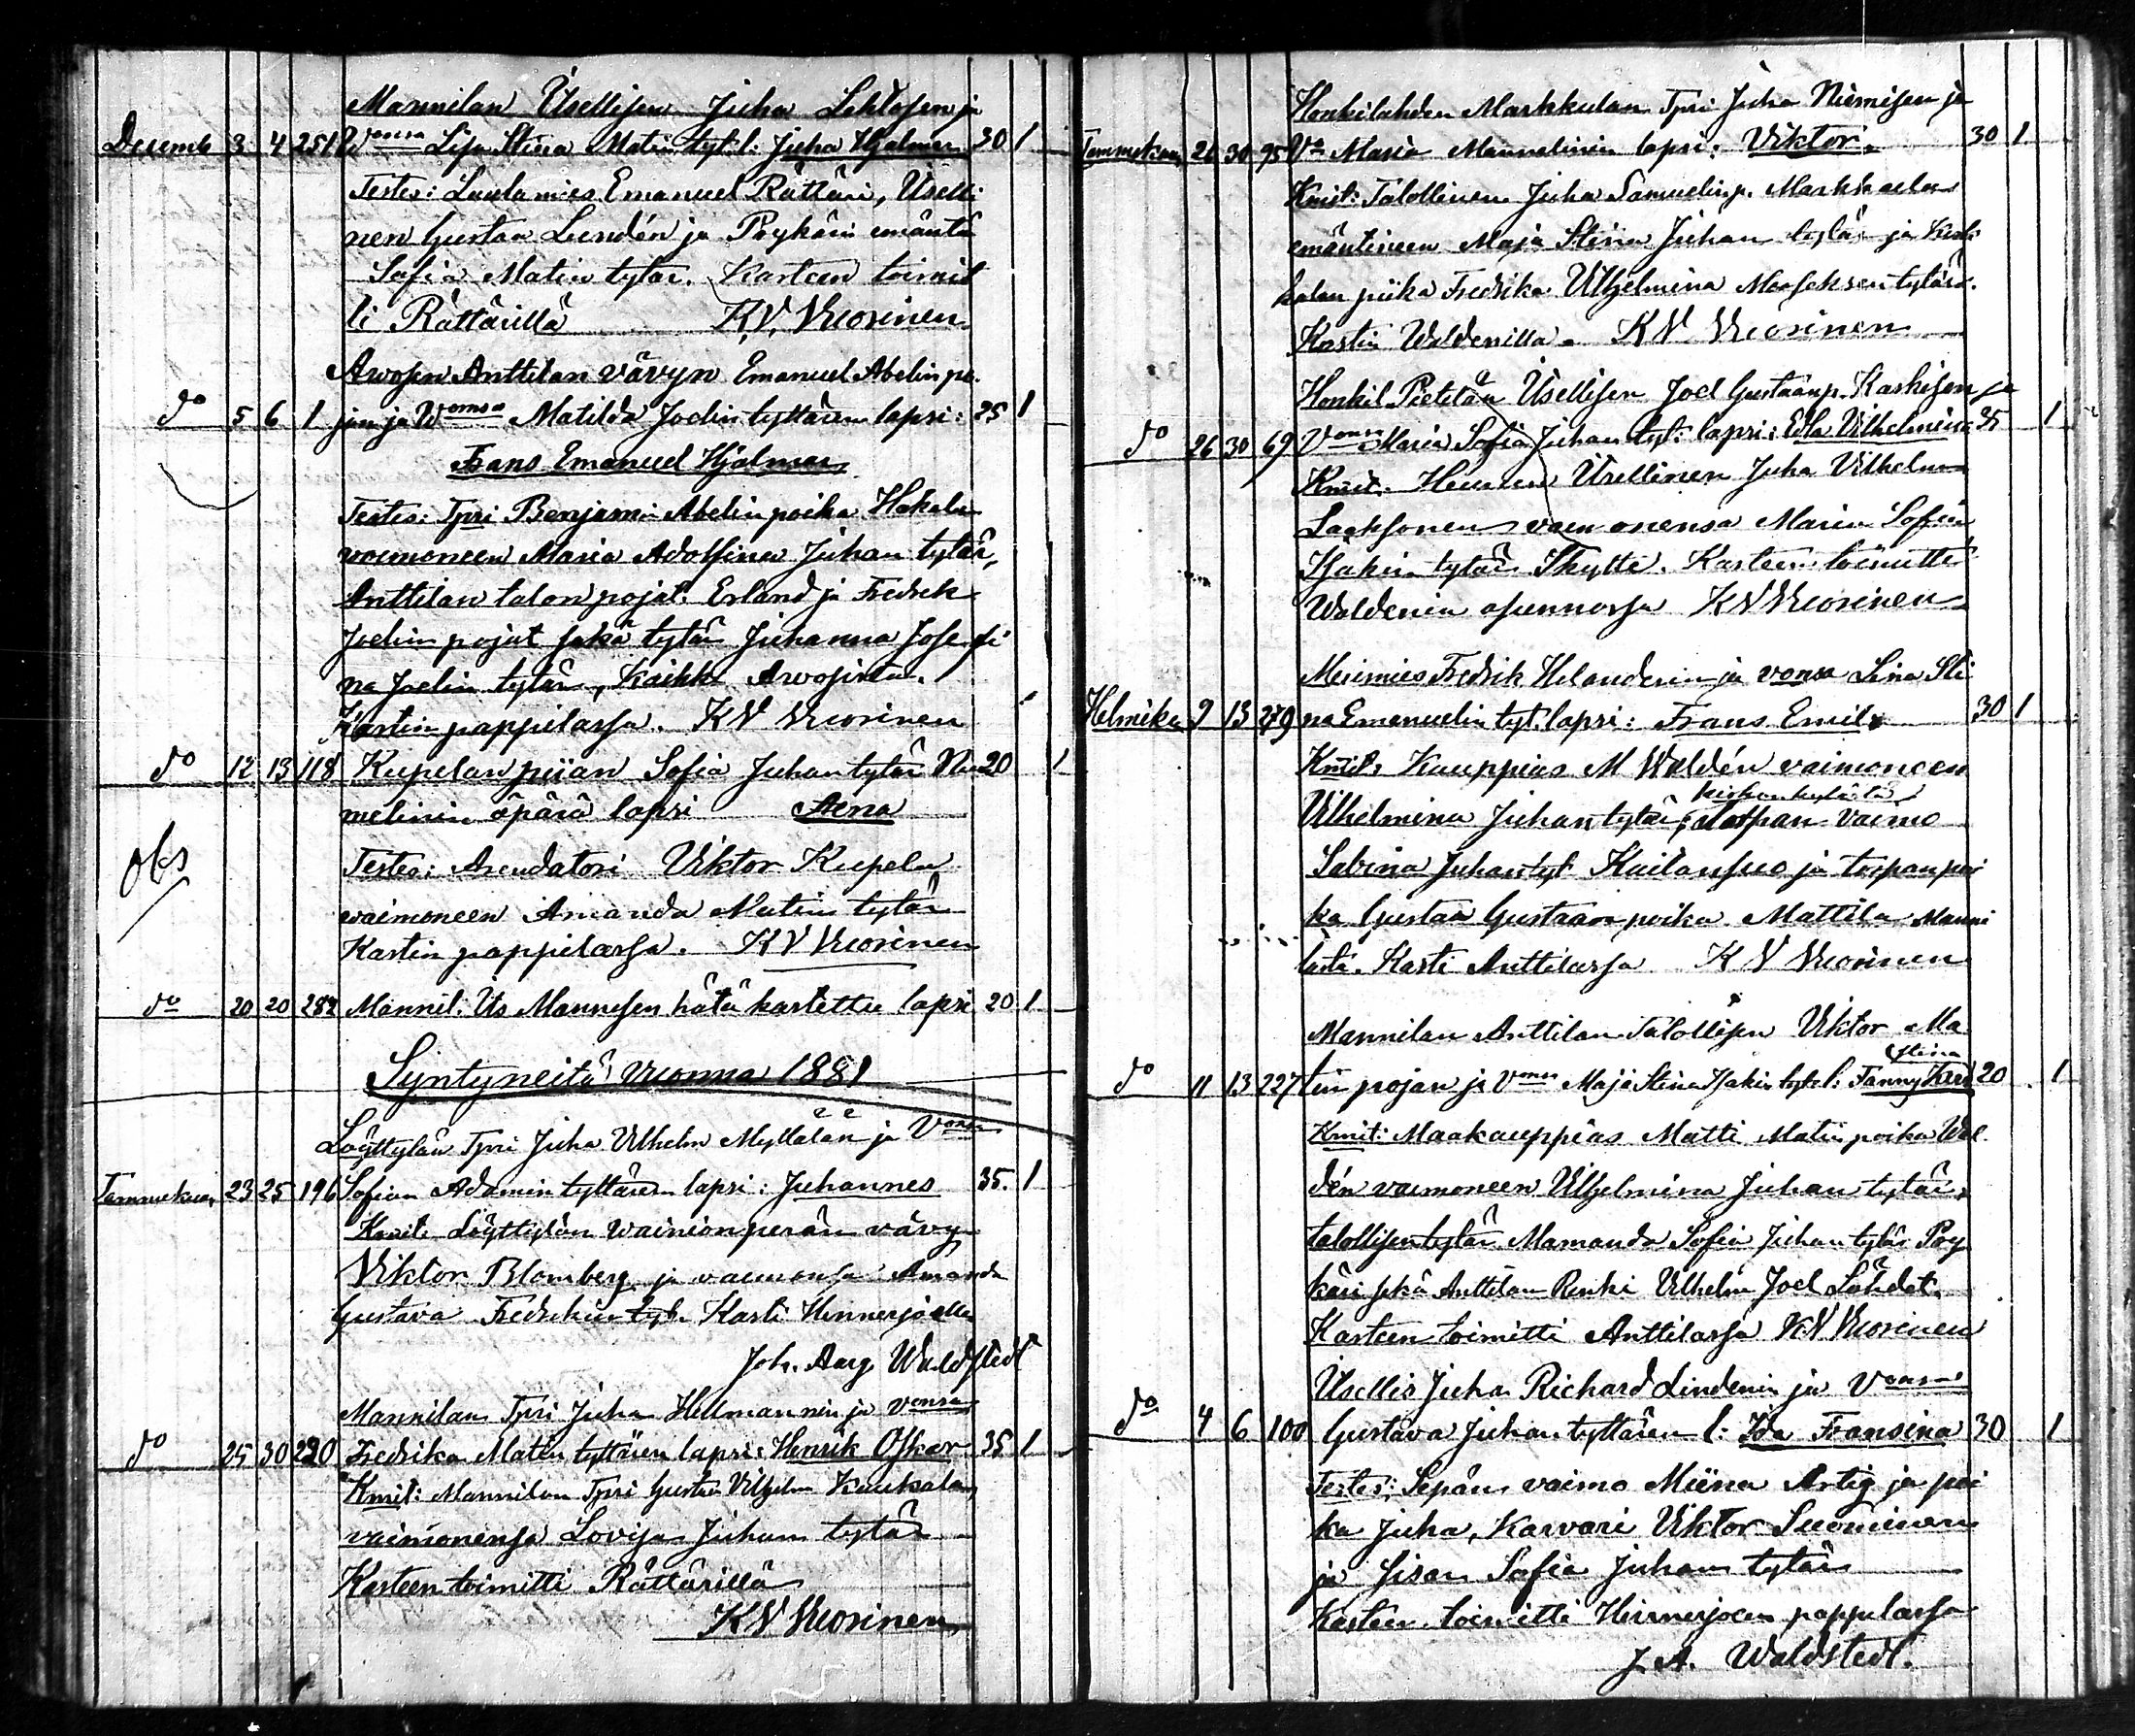 Mannilan Itsellisen Juha Lehtosen ja
Desemb 3 4 251 Wonsa Lisa Stina Matin tyt. l: Juha Hjalmar 30 1
Testes: Laulamies Emanuel Rättäri, Itselli
nen Gustaa Lundén ja Poykäri emäntä
Sofia Matin tytär. Kasteen toimit
ti Rättärillä K.V. Vuorinen
Arvosen Anttilan vävyn Emanuel Abelin po.
do 5 6 1 jan ja Womsa Matilda Joelin tyttären lapsi: 25 1
Frans Emanuel Hjalmar
Testes: Tpri Benjamin Abelin poika Hakala
vaimoneen Maria Adolfina Juhan tytär,
Anttilan talon pojat. Erland ja Fredrek
Joelin pojat sekä tytär Juhanna Josefi
na Joelin tytär, Kaikk Arvosista.
Kastin pappilassa. KV Vuorinen
do 12 13 118 Kupelan piian Sofia Juhan tytär Nu 20 1
melinin äpärä lapsi Aena
obs
Testes: Arendatori Viktor Kupela
vaimoneen Amanda Matin tytär
Kastin pappilassa. KV Vuorinen
do 20 20 282 Mannil: Its Mannesen hätä kastettu lapsi 20 1
Syntyneitä Vuonna 1881
Löyttylän Tpri Juha Vilhelm Myllälän ja Vonsa
Tammikuu, 23 25 196 Sofian Adamin tyttären lapsi: Juhannes 35. 1
Kmit: Löyttylän Wainionperän vävy
Viktor Blomberg ja vaimonsa Amanda
Gustava Fredrikin tyt. Kasti Hinnerjoella
Joh. Aug Waldstedt
Mannilan Tpri Juha Helmannin ja vonsa
do 25 30 230 Fredrika Matin tyttären lapsi: Henrik Oskar 35 1
Kmit: Mannilan Tpri Gustaa Vilhelm Kaukala,
vaimonensa Lovisa Juhan tytär
Kasteen toimitti Rättärillä
KV Vuorinen
Honkilahden Markkulan Tpri Juha Niemisen ja
Tammikuu 26 30 95 Va Maria Mannelinin lapsi: Viktor. 30 1
Kmit: Talollinen Juha Samuelin p. Markkula
emäntineen Maja Stina Juhan tytär ja Kark
kalan piika Fredrika Vilhelmina Mooseksen tytär.
Kastin Waldenilla. KV Vuorinen
Honkil Pietilän Itsellisen Joel Gustaan p. Kaskisen ja
do 26 30 69 Vonsa Maria Sofia Juhan tyt: lapsi: Edla Vilhelmina 35 1
Kmit. Itsellinen Juha Vilhelm
Laaksonen vaimonensa Maria Sofia
Isakin tytär Skytte. Kasteen toimitti
Waldenin asunnossa KV Vuorinen
Muimies Fredrik Helanderin ja vonsa Lina Sti
Helmiku 9 13 279 na Emanuelin tyt. lapsi: Frans Emil 30 1
Kmit: Kauppias M Waldén vaimoneen
kirkonkylästä
Vilhelmina Juhan tytär, Torpan vaimo
Sabina Juhan tyt Kaitansuo ja torpan poi
ka Gustaa Gustaan poika Mattila Manni
lasta. Kasti Anttilassa KV Vuorinen
Mannilan Anttilan Talollisen Viktor Ma
Stina
do 11 13 227 tin pojan ja Vonsa Maja Stina Isakin tyt l: Fanny Kris 20 1
Kmit: Maakauppias Matti Matin poika Wal
dén vaimoneen Vilhelmina Juhan tytär,
talollisen tytär Mamanda Sofia Juhan tytär Poy
käri sekä Anttilan Renki Vilhelm Joel Lähdet.
Kasteen toimitti Anttilassa KV Vuorinen
Itsellis Juha Richard Lindenin ja Vonsa
do 4 6 100 Gustava Juhan tyttären l: Ida Fransina 30 1
Testes: Sepän vaimo Miina Artig ja poi
ka Juha, Karvari Viktor Suominen
ja sisar Sofia Juhan tytär
Kasteen toimitti Hinnerjoen pappilassa
J. A. Waldstedt.